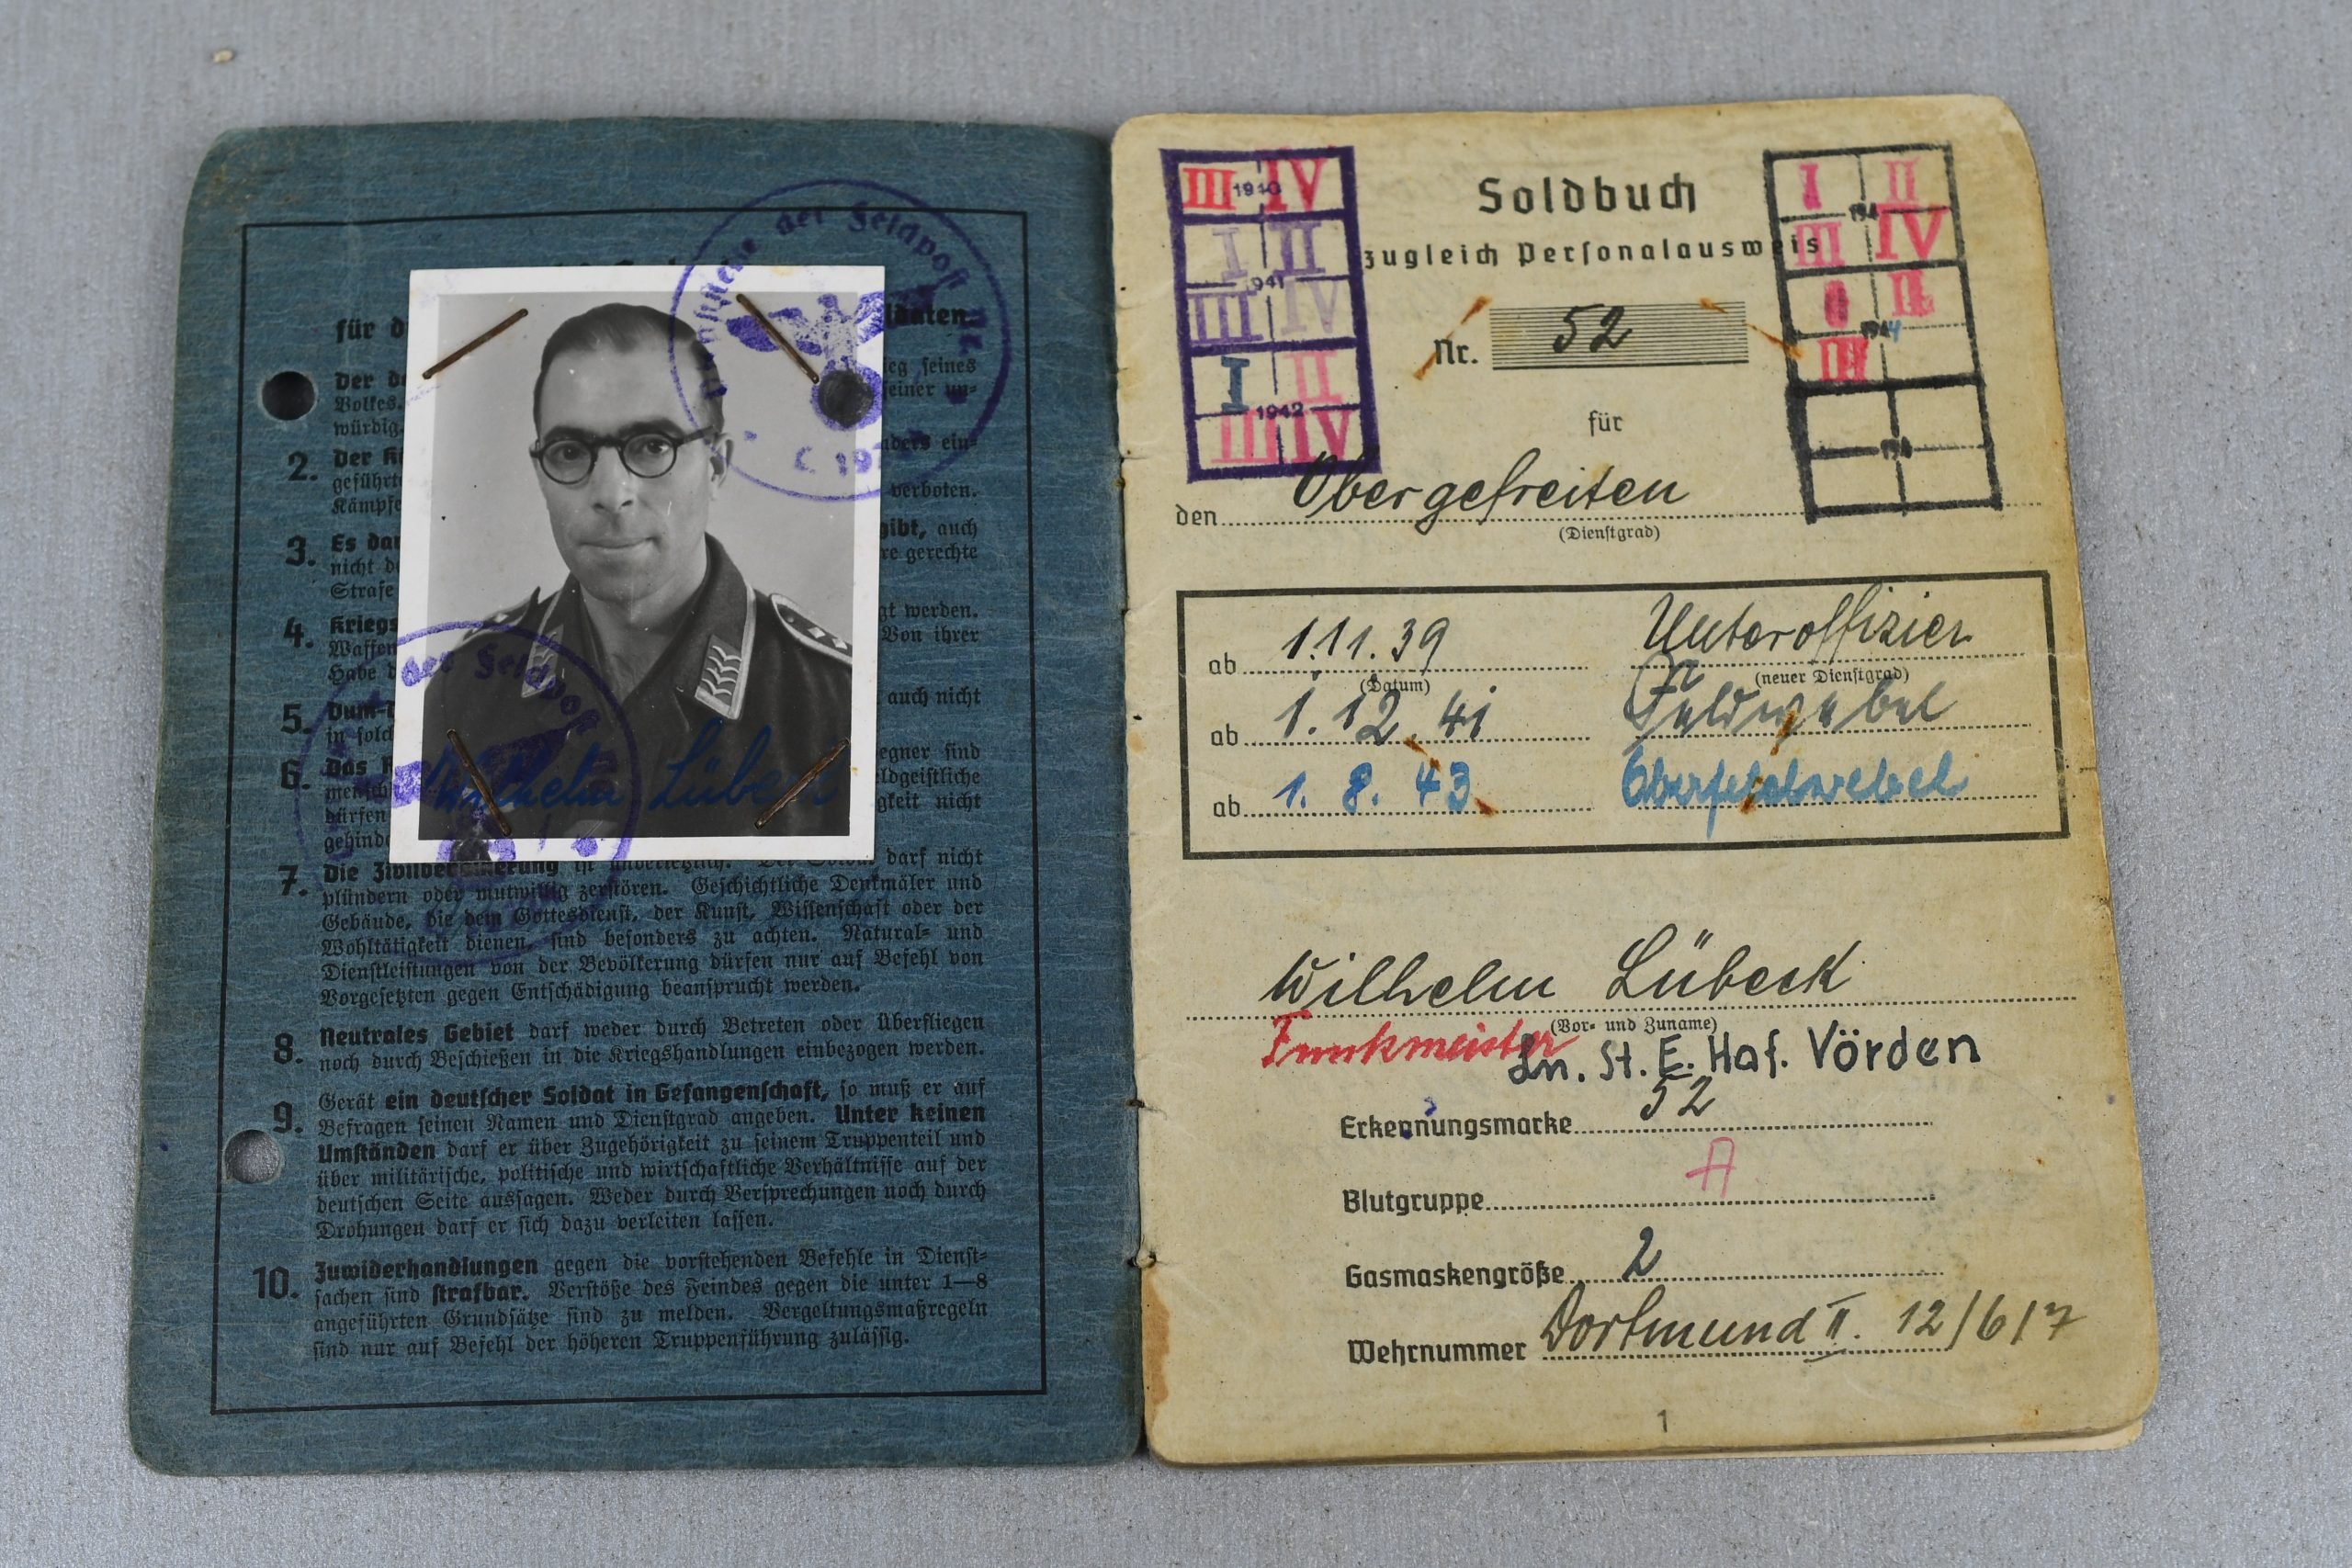 für d
ldaten.
Der de
ieg seines
Volkes.
seiner un-
würdig.
2. Der K
nders ein-
geführt
Kämpfe
verboten.
3. Es dar
gibt, auch
nicht d
re gerechte
Strafe
4. Kriegs
gt werden.
Waffen
Von ihrer
Habe d
5. Dum-
auch nicht
in solch
6. Das R
egner sind
mensch
ldgeistliche
dürfen
gkeit nicht
gehinde
7. Die Zivilbevölkerung ist unverletzlich. Der Soldat darf nicht
plündern oder mutwillig zerstören. Geschichtliche Denkmäler und
Gebäude, die dem Gottesdienst, der Kunst, Wissenschaft oder der
Wohltätigkeit dienen, sind besonders zu achten. Natural- und
Dienstleistungen von der Bevölkerung dürfen nur auf Befehl von
Vorgesetzten gegen Entschädigung beansprucht werden.
8. Neutrales Gebiet darf weder durch Betreten oder Überfliegen
noch durch Beschießen in die Kriegshandlungen einbezogen werden.
9. Gerät ein deutscher Soldat in Gefangenschaft, so muß er auf
Befragen seinen Namen und Dienstgrad angeben. Unter keinen
Umständen darf er über Zugehörigkeit zu seinem Truppenteil und
über militärische, politische und wirtschaftliche Verhältnisse auf der
deutschen Seite aussagen. Weder durch Versprechungen noch durch
Drohungen darf er sich dazu verleiten lassen.
10. Zuwiderhandlungen gegen die vorstehenden Befehle in Dienst-
sachen sind strafbar. Verstöße des Feindes gegen die unter 1—8
angeführten Grundsätze sind zu melden. Vergeltungsmaßregeln
sind nur auf Befehl der höheren Truppenführung zulässig.
der Feldpost
der Feldpost
Wilhelm Lübeck
III 1940 IV
I II
1941
III IV
I II
1942
III IV
I II
194
III IV
II
1944
III
194
Soldbuch
zugleich Personalausweis
Nr. 52
für
den Obergefreiten
(Dienstgrad)
ab 1.11.39 Unteroffizier
(Datum) (neuer Dienstgrad)
ab 1.12.41 Feldwebel
ab 1.8.43 Oberfeldwebel
Wilhelm Lübeck
(Vor- und Zuname)
Funkmeister Ln. St. E. Haf. Vörden
Erkennungsmarke 52
Blutgruppe A
Gasmaskengröße 2
Wehrnummer Dortmund II. 12/6/7
1